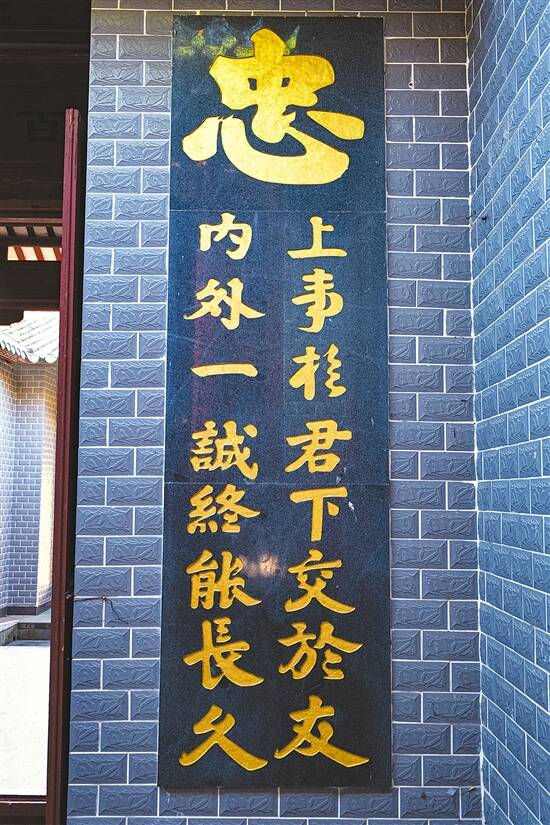 忠
上事扵君下交於友
内外一誠終能長久